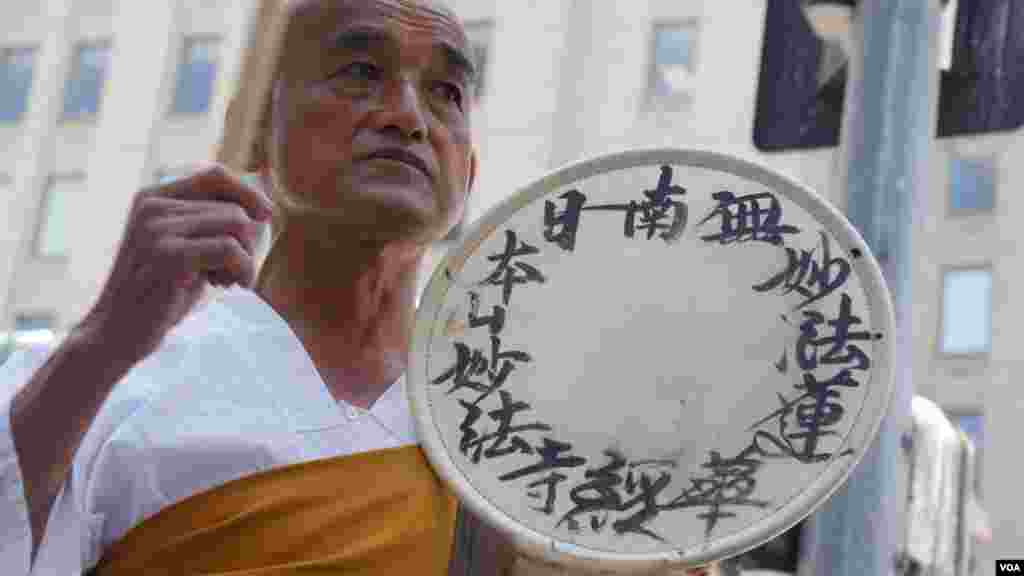 南無妙法蓮華經
日本山妙法寺
VOA